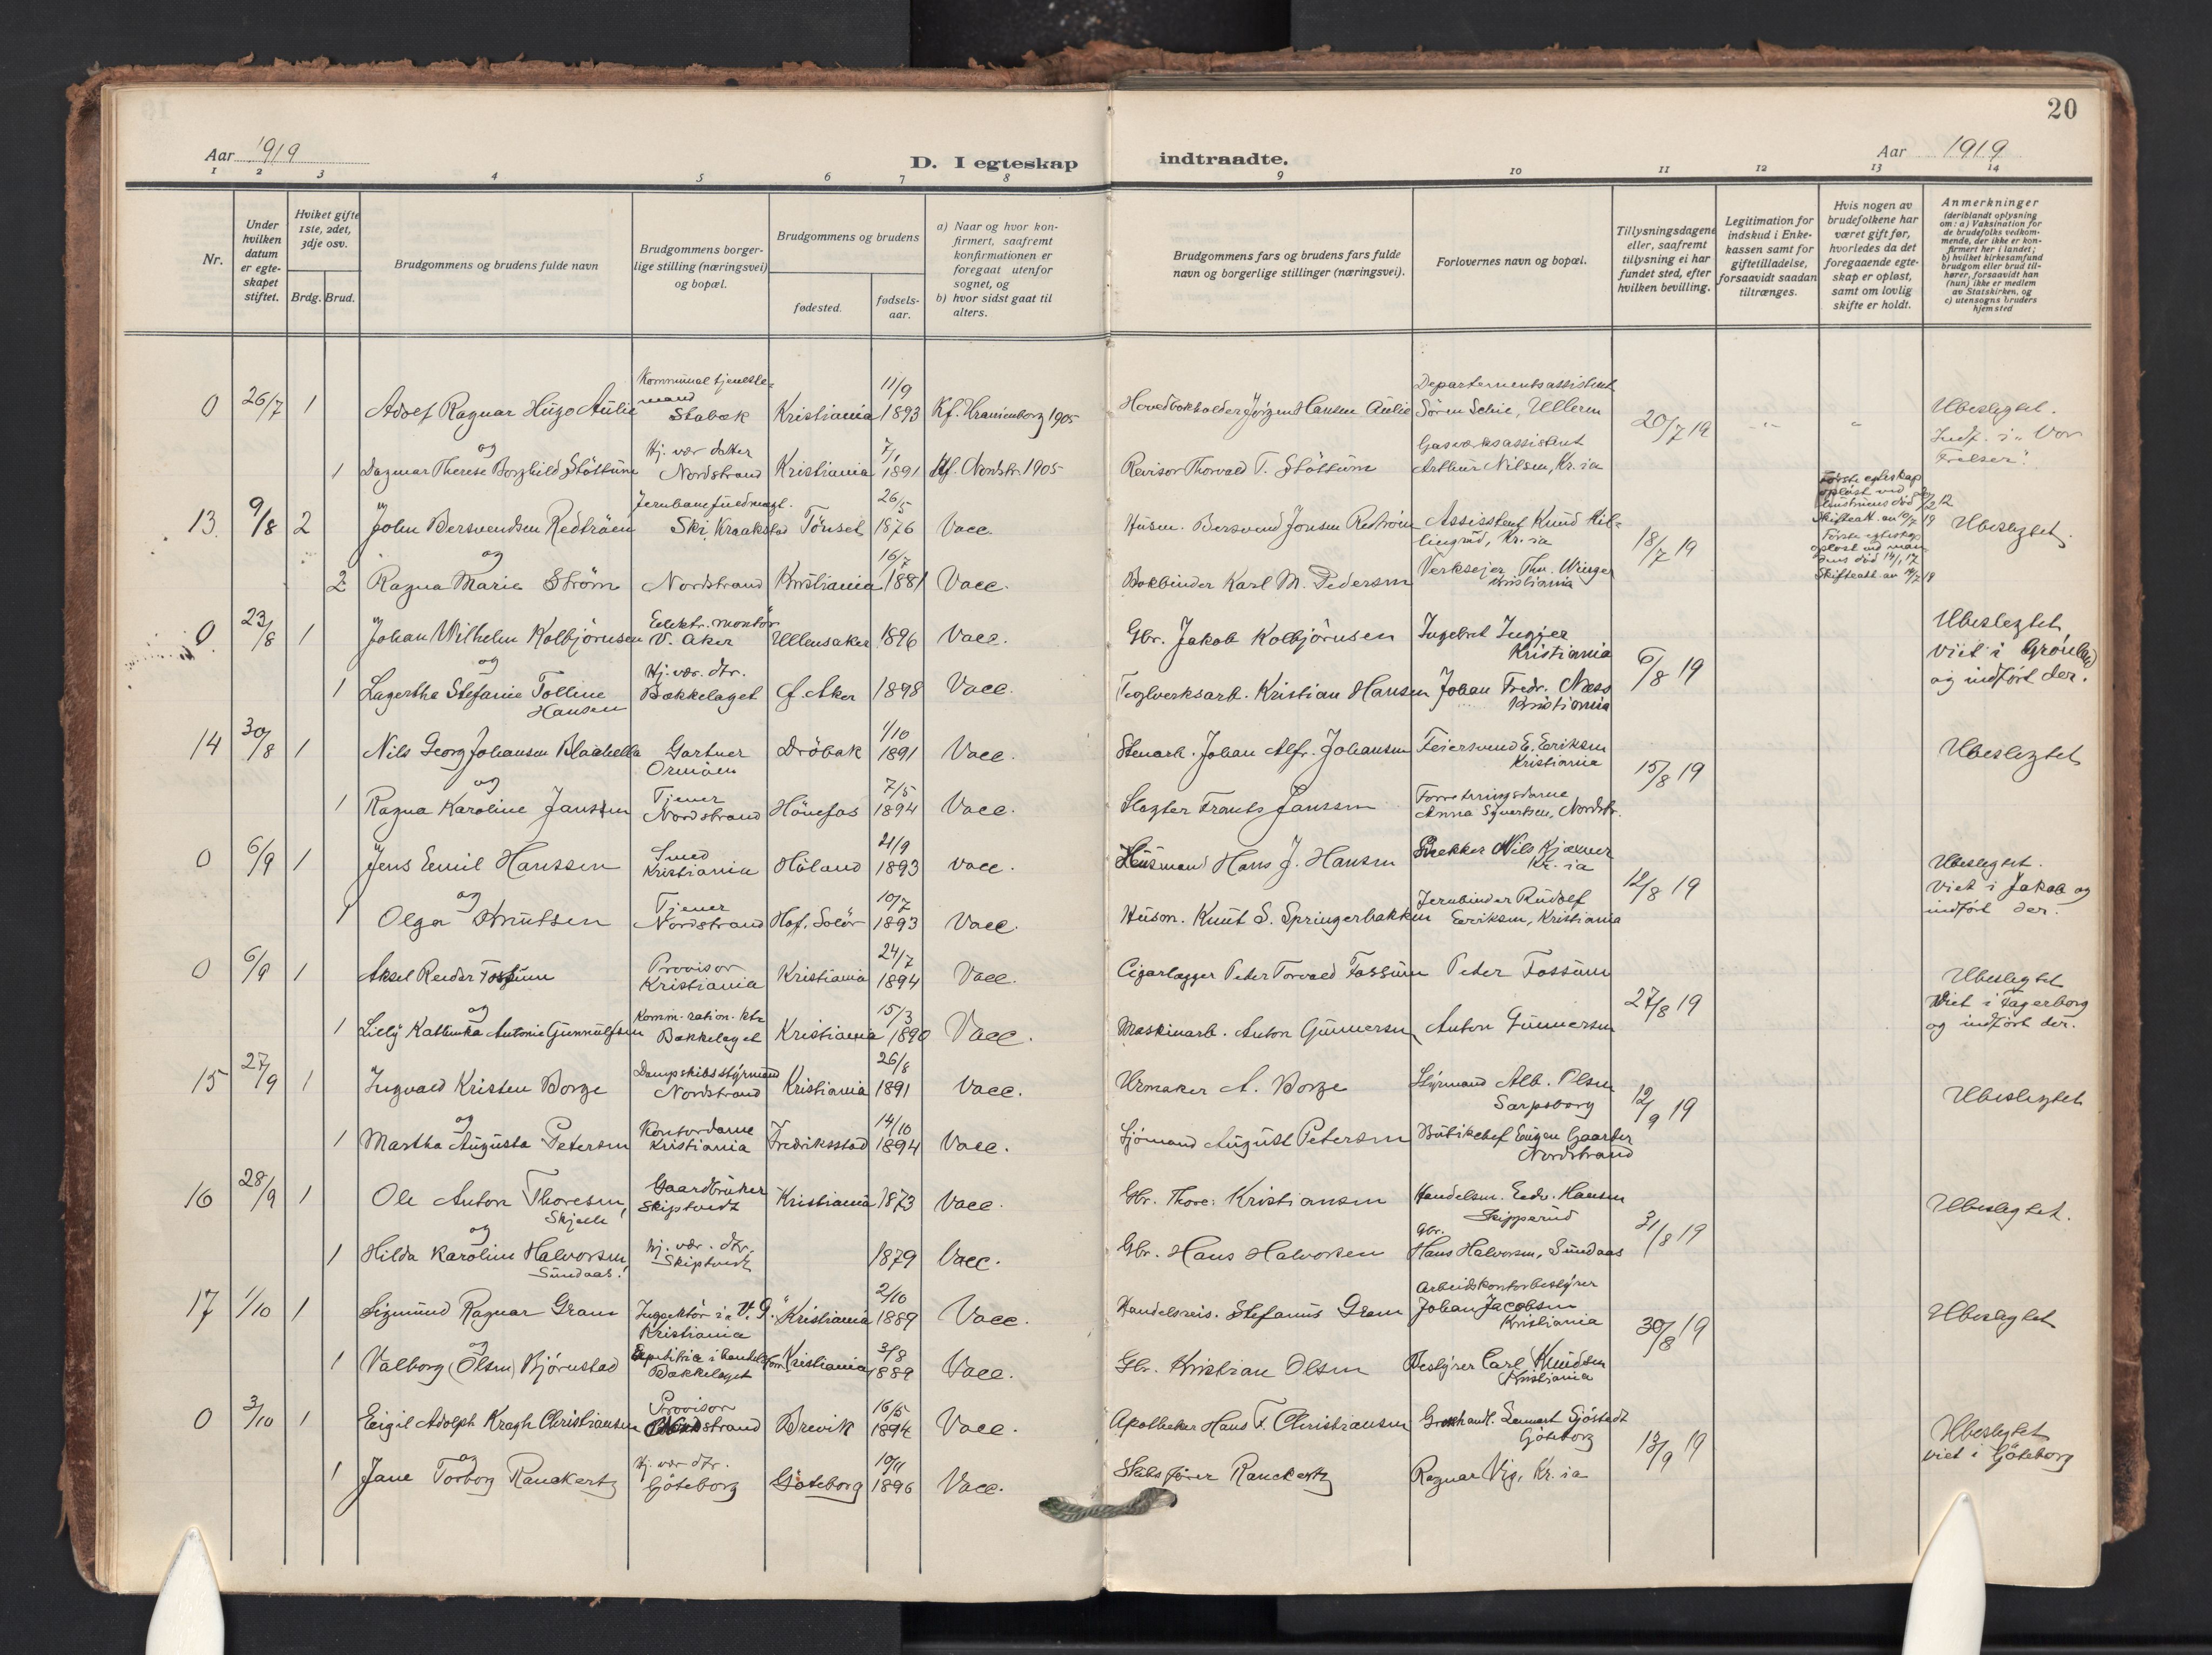 20
Aar 1919
D. I egteskap indtraadte.
Aar 1919
1 2 3 4 5 6 7 8 9 10 11 12 13 14
Nr.
Under hvilken datum er egteskapet stiftet.
Hviket gifte 1ste, 2det, 3dje osv.
Brdg. Brud.
Brudgommens og brudens fulde navn
Brudgommens borgerlige stilling (næringsvei) og bopæl.
Brudgommens og brudens
fødested.
fødselsaar.
a) Naar og hvor konfirmert, saafremt konfirmationen er foregaat utenfor sognet, og
b) hvor sidst gaat til alters.
Brudgommens fars og brudens fars fulde navn og borgerlige stillinger (næringsvei).
Forlovernes navn og bopæl.
Tillysningsdagene eller, saafremt tillysning ei har fundet sted, efter hvilken bevilling.
Legitimation for indskud i Enkekassen samt for giftetilladelse, forsaavidt saadan tiltrænges.
Hvis nogen av brudefolkene har været gift før, hvorledes da det foregaaende egteskap er opløst, samt om lovlig skifte er holdt.
Anmerkninger
(deriblandt oplysning om: a) Vaksination for de brudefolks vedkommende, der ikke er konfirmert her i landet; b) hvilket kirkesamfund brudgom eller brud tilhører, forsaavidt han (hun) ikke er medlem av Statskirken, og c) utensogns bruders hjemsted
0 26/7 1 Adolf Ragnar Hugo Aulie Kommunal tjenestemand Stabæk Kristiania 11/9 1893 Kf. Uranienborg 1905 Hovedbokholder Jörgen Hansen Aulie Departementsassistent Sören Schie, Ullern 20/7 19 Ubeslegtet. Indf. i "Vor Frelser".
og
1 Dagmar Therese Borghild Støttum Hj. vær. datter Nordstrand Kristiania 7/1 1891 Kf. Nordstr. 1905 Revisor Thorvald T. Støttum Gasværksassistent Arthur Nilsen, Kr.ia
13 9/8 2 John Bersvendsen Redtröen Jernbanefuldmægt. Ski, Kraakstad Tönset 26/5 1876 Vacc. Husm. Bersvend Jonsen Assistent Knud Killingrud, Kr.ia 18/7 19 Første egteskap opløst ved hustruens død Skifteatt. av 10/7 19 Ubeslegtet.
og
2 Ragna Marie Strøm Nordstrand Kristiania 16/7 1881 Vacc. Bokbinder Karl M. Pedersen Verkseier Thv. Winger Kristiania Første egteskap opløst ved mandens død 14/1 17 Skifteatt. av 14/7 19
0 23/8 1 Johan Wilhelm Kolbjörnsen Elektr. montör V. Aker Ullensaker 1896 Vacc. Gbr. Jakob Kolbjörnsen Ingebret Ingjer Kristiania 6/8 19 Ubeslegtet viet i Grönland og indfört der.
og
1 Lagertha Stefanie Tolline Hansen Hj. vær. dtr. Bækkelaget Ø. Aker 1898 Vacc. Teglverksarb. Kristian Hansen Johan Fredr. Næss Kristiania
14 30/8 1 Nils Georg Johansen Blaabella Gartner Ormöen Dröbak 1/10 1891 Vacc. Stenarb. Johan Alfr. Johansen Feiersvend E. Eriksen Kristiania 15/8 19 Ubeslegtet
og
1 Ragna Karoline Janssen Tjener Nordstrand Hönefos 7/5 1894 Vacc. Slagter Frants Janssen Forretningsdame Anna Syvertsen, Nordstr.
0 6/9 1 Jens Emil Hanssen Smed Kristiania Höland 21/9 1893 Vacc. Husmand Hans J. Hansen Snekker Nils Kjærner Kr.ia 12/8 19 Ubeslegtet. Viet i Jakob og indfört der.
og
1 Olga Knutsen Tjener Nordstrand Hof, Solör 10/7 1893 Vacc. Husm. Knut S. Springerbakken Jernbinder Rudolf Eriksen, Kristiania
0 6/9 1 Aksel Reidar Fossum Provisor Kristiania Kristiania 24/7 1894 Vacc. Cigarlagger Peter Torvald Fossum Peter Fossum 27/8 19 Ubeslegtet Viet i Fagerborg og indfört der.
og
1 Lilly Kathinka Antonie Gunnulfsen Bækkelaget Kristiania 15/3 1890 Vacc. Maskinarb. Anton Gunnersen Anton Gunnersen
15 27/9 1 Ingvald Kristen Borge Dampskibsstyrmand Nordstrand Kristiania 26/8 1891 Vacc. Urmaker A. Borge Styrmand Alb. Olsen Sarpsborg 12/9 19 Ubeslegtet
og
1 Martha Augusta Petersen Kontordame Kristiania Fredriksstad 14/10 1894 Vacc. Sjömand August Petersen Butikchef Eugen Gaarder Nordstrand
16 28/9 1 Ole Anton Thoresen, Skjelle Gaardbruker Skiptvedt Kristiania 1873 Vacc. Gbr. Thore Kristiansen Handelsm. Edv. Hansen Skipperud 31/8 19 Ubeslegtet.
og
1 Hilda Karoline Halvorsen Sundaas hj. vær. dtr. Skiptvedt 1879 Vacc. Gbr. Hans Halvorsen Gbr. Hans Halvorsen, Sundaas
17 1/10 1 Sigmund Ragnar Gram Inspektör i Kristiania Kristiania 2/10 1889 Vacc. Handelsreis. Stefanus Gram Arbeidskontorbestyrer Johan Jacobsen Kristiania 30/8 19 Ubeslegtet
og
1 Valborg (Olsen) Björnstad Bækkelaget Kristiania 3/8 1889 Vacc. Gbr. Kristian Olsen Bestyrer Carl Knudsen Kristiania
0 3/10 1 Eigil Adolph Kragh Christiansen Provisor Nordstrand Brevik 16/5 1894 Vacc. Apotheker Hans F. Christiansen Grosshandl. Lennart Sjöstedt Göteborg 13/9 19 Ubeslegtet viet i Göteborg
og
1 Jane Torborg Ranckertz Hj. vær dtr. Göteborg Göteborg 10/11 1896 Vacc. Skibsförer Ranckertz Ragnar Vig, Kr.ia